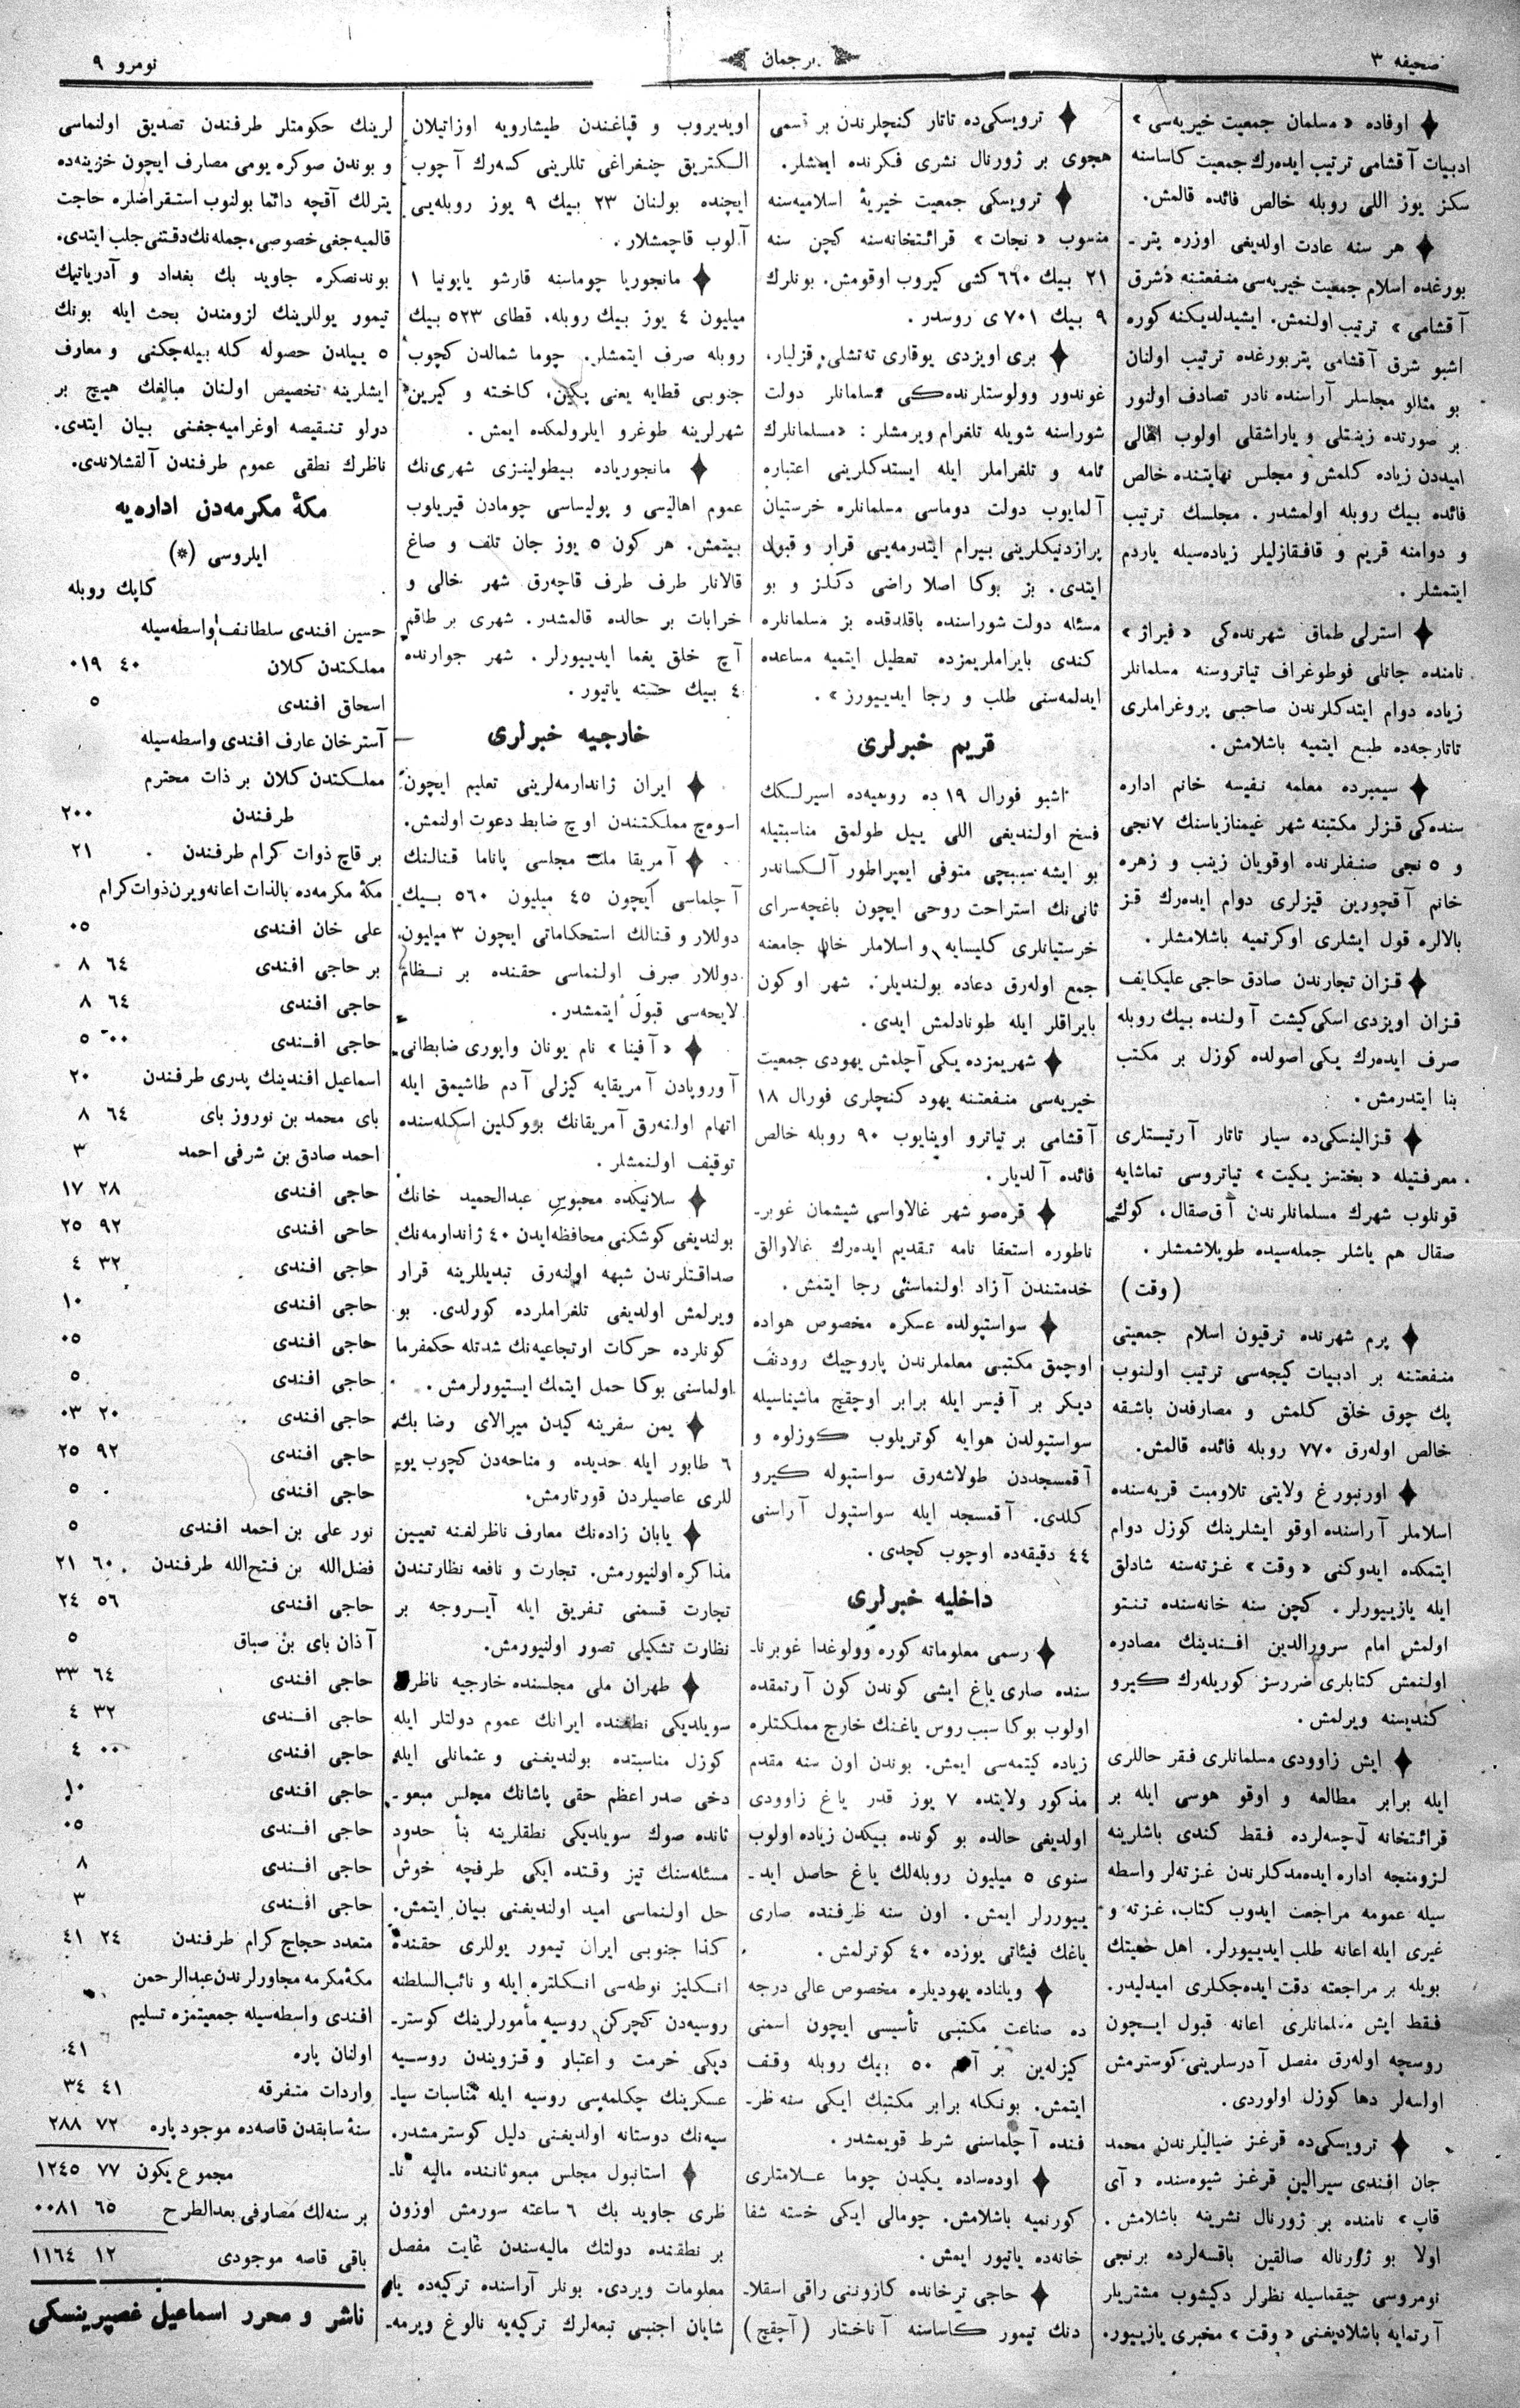 صحیفه ٣
ترجمان
نومرو ٩
اوفاده « مسلمان جمعیت خیریه‌سی »
ادبیات آقشامی ترتیب ایده‌رك جمعیت كاساسنه
سكز یوز اللی روبله خالص فائده قالمش.
هر سنه عادت اولدیغی اوزره پتر-
بورغده اسلام جمعیت خیریه‌سی منفعتنه « شرق
آقشامی » ترتیب اولنمش. ایشیدلدیكنه كوره
اشبو شرق آقشامی پتربورغده ترتیب اولنان
بو مثللو مجلسلر آراسنده نادر تصادف اولنور
بر صورتده زینتلی و یاراشقلی اولوب اهالی
امیددن زیاده كلمش و مجلس نهایتنده خالص
فائده بیك روبله اولمشدر. مجلسك ترتیب
و دوامنه قریم و قافقازلیلر زیاده‌سیله یاردم
ایتمشلر.
استرلی طماق شهرنده‌كی « فیراژ »
نامنده جانلی فوطوغراف تیاتروسنه مسلمانلر
زیاده دوام ایتدكلرندن صاحبی پروغراملری
تاتارجه‌ده طبع ایتمیه باشلامش.
سیمبرده معلمه نفیسه خانم اداره
سنده‌كی قزلر مكتبنه شهر غیمنازیاسنك ٧نجی
و ٥ نجی صنفلرنده اوقویان زینب و زهره
خانم آقچورین قیزلری دوام ایده‌رك قز
بالالره قول ایشلری اوكرتمیه باشلامشلر.
قزان تجارندن صادق حاجی علیكایف
قزان اویزدی اسكی كیشت آولنده بیك روبله
صرف ایده‌رك یكی اصولده كوزل بر مكتب
بنا ایتدرمش.
قزالینسكی‌ده سیار تاتار آرتیستلری
معرفتیله « بختسز یكیت » تیاتروسی تماشایه
قونلوب شهرك مسلمانلرندن آق‌صقال، كوك
صقال هم یاشلر جمله‌سیده طوپلاشمشلر.
(وقت)
پرم شهرنده ترقیون اسلام جمعیتی
منفعتنه بر ادبیات كیجه‌سی ترتیب اولنوب
پك چوق خلق كلمش و مصارفدن باشقه
خالص اوله‌رق ٧٧٠ روبله فائده قالمش.
اورنبورغ ولایتی تلاومبت قریه‌سنده
اسلاملر آراسنده اوقو ایشلرینك كوزل دوام
ایتمكده ایدوكنی « وقت » غزته‌سنه شادلق
ایله یازییورلر. كچن سنه خانه‌سنده تنتو
اولمش امام سرورالدین افندینك مصادره
اولنمش كتابلری ضررسز كوریله‌رك كیرو
كندیسنه ویرلمش.
ایش زاوودی مسلمانلری فقر حاللری
ایله برابر مطالعه و اوقو هوسی ایله بر
قرائتخانه آچسه‌لرده فقط كندی باشلرینه
لزومنجه اداره ایده‌مدكلرندن غزته‌لر واسطه
سیله عمومه مراجعت ایدوب كتاب، غزته و
غیری ایله اعانه طلب ایدییورلر. اهل حمیتك
بویله بر مراجعته دقت ایده‌جكلری امیدلیدر.
فقط ایش مسلمانلری اعانه قبول ایچون
روسچه اوله‌رق مفصل آدرسلرینی كوسترمش
اولسه‌لر دها كوزل اولوردی.
ترویسكی‌ده قرغز ضیالیلرندن محمد
جان افندی سیرالین قرغز شیوه‌سنده « آی
قاپ » نامنده بر ژورنال نشرینه باشلامش.
اولا بو ژورناله صالقین باقسه‌لرده برنجی
نومروسی چیقماسیله نظرلر دكیشوب مشتریلر
آرتمایه باشلادیغنی « وقت » مخبری یازییور.
ترویسكی‌ده تاتار كنچلرندن بر قسمی
هجوی بر ژورنال نشری فكرنده ایمشلر.
ترویسكی جمعیت خیریهٔ اسلامیه‌سنه
منسوب « نجات » قرائتخانه‌سنه كچن سنه
٢١ بیك ٦٦٠ كشی كیروب اوقومش. بونلرك
٩ بیك ٧٠١ی روسدر.
بری اویزدی یوقاری ته‌تشلی، قزلیار،
غوندور وولوستلرنده‌كی مسلمانلر دولت
شوراسنه شویله تلغرام ویرمشلر: « مسلمانلرك
نامه و تلغراملر ایله ایستدكلرینی اعتباره
آلمایوب دولت دوماسی مسلمانلره خرستیان
پرازدنیكلرینی بیرام ایتدرمه‌یی قرار و قبول
ایتدی. بز بوكا اصلا راضی دكلز و بو
مسئله دولت شوراسنده باقلدقده بز مسلمانلره
كندی بایراملریمزده تعطیل ایتمیه مساعده
ایدلمه‌سنی طلب و رجا ایدییورز ».
قریم خبرلری
اشبو فورال ١٩ ده روسیه‌ده اسیرلكك
فسخ اولندیغی اللی ییل طولمق مناسبتیله
بو ایشه سببچی متوفی ایمپراطور آلكساندر
ثانی‌نك استراحت روحی ایچون باغچه‌سرای
خرستیانلری كلیسایه و اسلاملر خان جامعنه
جمع اوله‌رق دعاده بولندیلر. شهر اوكون
بایراقلر ایله طونادلمش ایدی.
شهریمزده یكی آچلمش یهودی جمعیت
خیریه‌سی منفعتنه یهود كنچلری فورال ١٨
آقشامی بر تیاترو اوینایوب ٩٠ روبله خالص
فائده آلدیلر.
قره‌صو شهر غالاواسی شیشمان غوبر-
ناطوره استعفا نامه تقدیم ایده‌رك غالاوالق
خدمتندن آزاد اولنماسنی رجا ایتمش.
سواستپولده عسكره مخصوص هواده
اوچمق مكتبی معلملرندن پاروچیك رودنف
دیكر بر آفیسر ایله برابر اوچقچ ماشیناسیله
سواستپولدن هوایه كوتریلوب كوزلوه و
آقمسجددن طولاشه‌رق سواستپوله كیرو
كلدی. آقمسجد ایله سواستپول آراسنی
٤٤ دقیقه‌ده اوچوب كچدی.
داخلیه خبرلری
رسمی معلوماته كوره وولوغدا غوبرنا-
سنده صاری یاغ ایشی كوندن كون آرتمقده
اولوب بوكا سبب روس یاغنك خارج مملكتلره
زیاده كیتمه‌سی ایمش. بوندن اون سنه مقدم
مذكور ولایتده ٧ یوز قدر یاغ زاوودی
اولدیغی حالده بو كونده بیكدن زیاده اولوب
سنوی ٥ میلیون روبله‌لك یاغ حاصل اید-
ییوررلر ایمش. اون سنه ظرفنده صاری
یاغك فیئاتی یوزده ٤٠ كوترلمش.
ویلناده یهودیلره مخصوص عالی درجه
ده صناعت مكتبی تأسیسی ایچون اسمنی
كیزله‌ین بر آدم ٥٠ بیك روبله وقف
ایتمش. بونكله برابر مكتبك ایكی سنه ظر-
فنده آچلماسنی شرط قویمشدر.
اوده‌ساده یكیدن چوما علامتلری
كورنمیه باشلامش. چومالی ایكی خسته شفا
خانه‌ده یاتیور ایمش.
حاجی ترخانده كازوننی راقی اسقلا-
دنك تیمور كاساسنه آناختار (آچقچ)
اویدیروب و قپاغندن طیشارویه اوزاتیلان
الكتریق چنغراغی تللرینی كسه‌رك آچوب
ایچنده بولنان ٢٣ بیك ٩ یوز روبله‌یی
آلوب قاچمشلار.
مانجوریا چوماسنه قارشو یاپونیا ١
میلیون ٤ یوز بیك روبله. قطای ٥٢٣ بیك
روبله صرف ایتمشلر. چوما شمالدن كچوب
جنوبی قطایه یعنی پكین، كاخته و كیرین
شهرلرینه طوغرو ایلرولمكده ایمش.
مانجوریاده بیطولینزی شهری‌نك
عموم اهالیسی و پولیساسی چومادن قیریلوب
بیتمش. هر كون ٥ یوز جان تلف و صاغ
قالانلر طرف طرف قاچه‌رق شهر خالی و
خرابات بر حالده قالمشدر. شهری بر طاقم
آچ خلق یغما ایدییورلر. شهر جوارنده
٤ بیك خسته یاتیور.
خارجیه خبرلری
ایران ژاندارمه‌لرینی تعلیم ایچون
اسوه‌چ مملكتندن اوچ ضابط دعوت اولنمش.
آمریقا ملت مجلسی پاناما قنالنك
آچلماسی ایچون ٤٥ میلیون ٥٦٠ بیك
دوللار و قنالك استحكاماتی ایچون ٣ میلیون
دوللار صرف اولنماسی حقنده بر نظام
لایحه‌سی قبول ایتمشدر.
« آفینا » نام یونان واپوری ضابطانی
آوروپادن آمریقایه كیزلی آدم طاشیمق ایله
اتهام اولنه‌رق آمریقانك بروكلین اسكله‌سنده
توقیف اولنمشلر.
سلانیكده محبوس عبدالحمید خانك
بولندیغی كوشكنی محافظه ایدن ٤٠ ژاندارمه‌نك
صداقتلرندن شبهه اولنه‌رق تبدیللرینه قرار
ویرلمش اولدیغی تلغراملرده كورلدی. بو
كونلرده حركات ارتجاعیه‌نك شدتله حكمفرما
اولماسنی بوكا حمل ایتمك ایستیورلرمش.
یمن سفرینه كیدن میرالای رضا بك
٦ طابور ایله حدیده و مناحه‌دن كچوب یوـ
للری عاصیلردن قورتارمش.
یابان زاده‌نك معارف ناظرلغنه تعیین
مذاكره اولنیورمش. تجارت و نافعه نظارتندن
تجارت قسمنی تفریق ایله آیروجه بر
نظارت تشكیلی تصور اولنیورمش.
طهران ملی مجلسنده خارجیه ناظری
سویلدیكی نطقنده ایرانك عموم دولتلر ایله
كوزل مناسبتده بولندیغنی و عثمانلی ایله
دخی صدر اعظم حقی پاشانك مجلس مبعو-
ثانده صوك سویلدیكی نطقلرینه بنأ حدود
مسئله‌سنك تیز وقتده ایكی طرفچه خوش
حل اولنماسی امید اولندیغنی بیان ایتمش.
كذا جنوبی ایران تیمور یوللری حقنده
انكلیز نوطه‌سی انكلتره ایله و نائب السلطنه
روسیه‌دن كچركن روسیه مأمورلرینك كوستر-
دیكی حرمت و اعتبار و قزویندن روسیه
عسكرینك چكلمه‌سی روسیه ایله مناسبات سیا-
سیه‌نك دوستانه اولدیغنی دلیل كوسترمشدر.
استانبول مجلس مبعوثاننده مالیه نا-
ظری جاوید بك ٦ ساعته سورمش اوزون
بر نطقنده دولتك مالیه‌سندن غایت مفصل
معلومات ویردی. بونلر آراسنده تركیه‌ده یا
شایان اجنبی تبعه‌لرك تركیه‌یه نالوغ ویرمه-
لرینك حكومتلر طرفندن تصدیق اولنماسی
و بوندن صوكره یومی مصارف ایچون خزینه‌ده
یترلك آقچه دائما بولنوب استقراضلره حاجت
قالمیه‌جغی خصوصی، جمله‌نك دقتنی جلب ایتدی.
بوندنصكره جاوید بك بغداد و آدریاتیك
تیمور یوللرینك لزومندن بحث ایله بونك
٥ ییلدن حصوله كله بیله‌جكنی و معارف
ایشلرینه تخصیص اولنان مبالغك هیچ بر
درلو تنقیصه اوغرامیه‌جغنی بیان ایتدی.
ناظرك نطقی عموم طرفندن آلقشلاندی.
مكهٔ مكرمه‌دن اداره‌یه
ایلروسی (*)
كاپك روبله
حسین افندی سلطانف واسطه‌سیله
مملكتدن كلان ٤٠ ٠١٩
اسحاق افندی ٥
آسترخان عارف افندی واسطه‌سیله
مملكتدن كلان بر ذات محترم
طرفندن ٢٠٠
بر قاچ ذوات كرام طرفندن ٢١
مكهٔ مكرمه‌ده بالذات اعانه ویرن ذوات كرام
علی خان افندی ٠٥
بر حاجی افندی ٦٤ ٨
حاجی افندی ٦٤ ٨
حاجی افندی ٠٠ ٥
اسماعیل افندینك پدری طرفندن ٢٠
بای محمد بن نوروز بای ٦٤ ٨
احمد صادق بن شرفی احمد ٣
حاجی افندی ٢٨ ١٧
حاجی افندی ٩٢ ٢٥
حاجی افندی ٣٢ ٤
حاجی افندی ١٠
حاجی افندی ٠٥
حاجی افندی ٥
حاجی افندی ٢٠ ٠٣
حاجی افندی ٩٢ ٢٥
حاجی افندی ٥
نور علی بن احمد افندی ٥
فضل‌الله بن فتح‌الله طرفندن ٦٠ ٢١
حاجی افندی ٥٦ ٢٤
آذان بای بن صباق ٥
حاجی افندی ٦٤ ٣٣
حاجی افندی ٣٢ ٤
حاجی افندی ٠٠ ٤
حاجی افندی ١٠
حاجی افندی ٠٥
حاجی افندی ٨
حاجی افندی ٣
متعدد حجاج كرام طرفندن ٢٤ ٤١
مكهٔ مكرمه مجاورلرندن عبدالرحمن
افندی واسطه‌سیله جمعیتمزه تسلیم
اولنان پاره ٤١
واردات متفرقه ٤١ ٣٤
سنهٔ سابقدن قاصه‌ده موجود پاره ٧٢ ٢٨٨
مجموع یكون ٧٧ ١٢٤٥
بر سنه‌لك مصارفی بعدالطرح ٦٥ ٠٠٨١
باقی قاصه موجودی ١٢ ١١٦٤
ناشر و محرر اسماعیل غصپرینسكی